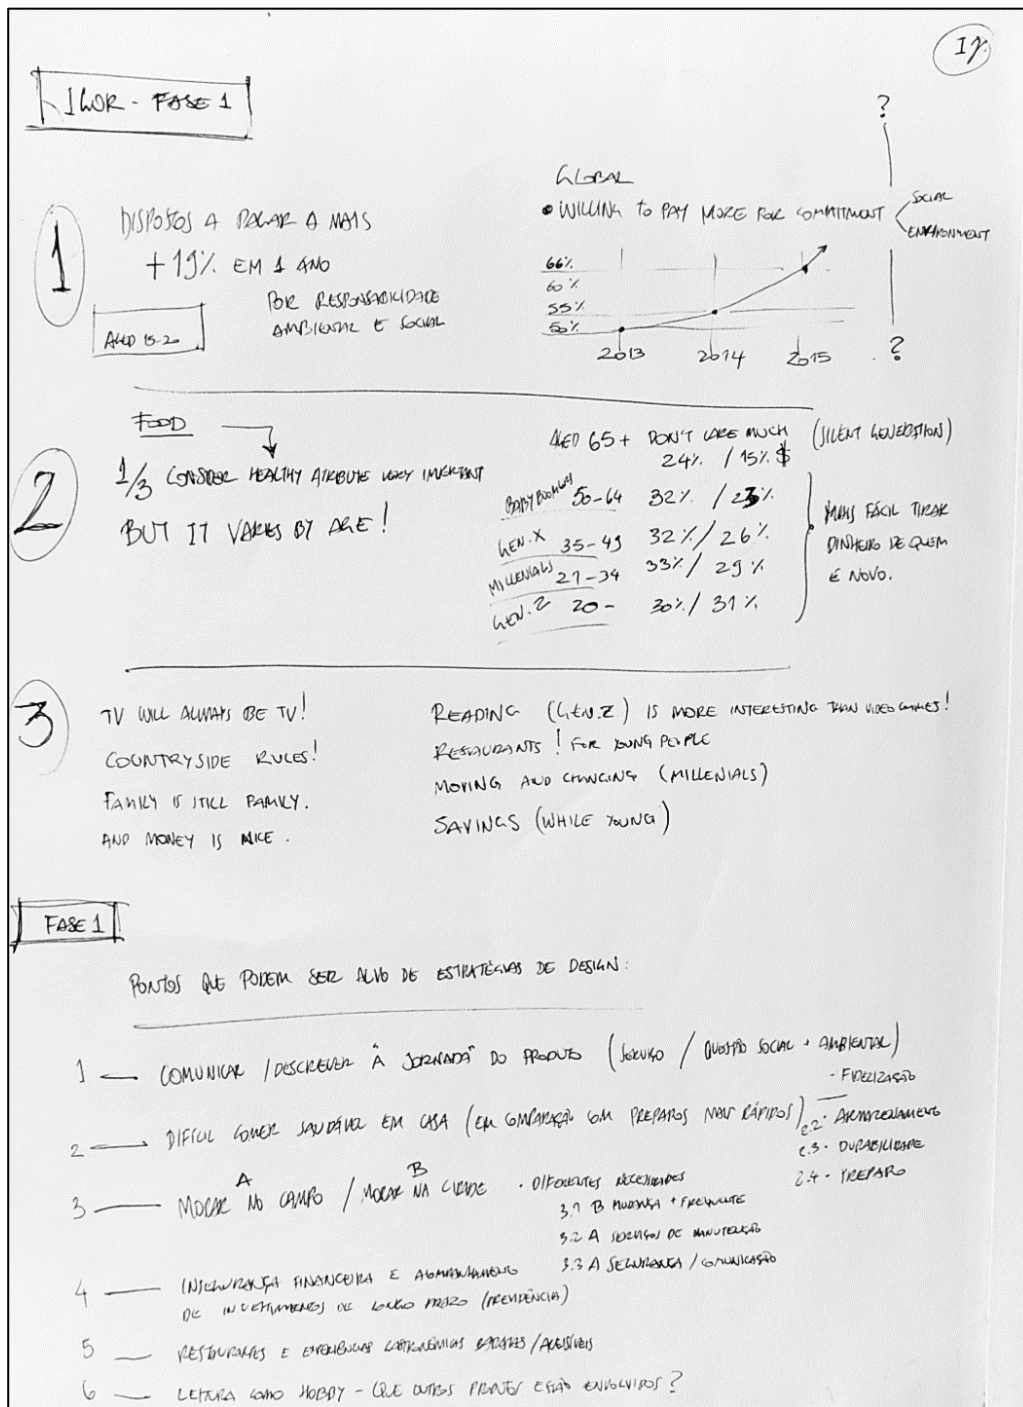 IP.
IGOR - FASE 1
1
DISPOSTOS A PAGAR A MAIS
+19% EM 1 ANO
POR RESPONSABILIDADE
AMBIENTAL E SOCIAL
AGED 15-20
GLOBAL
• WILLING TO PAY MORE FOR COMMITMENT
SOCIAL
ENVIRONMENT
?
66%
60%
55%
50%
2013 2014 2015
?
2
FOOD
1/3 CONSIDER HEALTHY ATRIBUTE VERY IMPORTANT
BUT IT VARIES BY AGE!
AGED 65+ DON'T CARE MUCH (SILENT GENERATION)
24% / 15% $
BABY BOOMERS 50-64 32% / 23%
GEN. X 35-49 32% / 26%
MILLENIALS 21-34 33% / 29%
GEN. Z 20- 30% / 31%
MAIS FÁCIL TIRAR
DINHEIRO DE QUEM
É NOVO.
3
TV WILL ALWAYS BE TV!
COUNTRYSIDE RULES!
FAMILY IS STILL FAMILY.
AND MONEY IS NICE.
READING (GEN.Z.) IS MORE INTERESTING THAN VIDEO GAMES!
RESTAURANTS! FOR YOUNG PEOPLE
MOVING AND CHANGING (MILLENIALS)
SAVINGS (WHILE YOUNG)
FASE 1
PONTOS QUE PODEM SER ALVO DE ESTRATÉGIAS DE DESIGN:
1 — COMUNICAR / DESCREVER "A JORNADA" DO PRODUTO (SERVIÇO / QUESTÃO SOCIAL + AMBIENTAL)
- FIDELIZAÇÃO
2 — DIFÍCIL COMER SAUDÁVEL EM CASA (EM COMPARAÇÃO COM PREPAROS MAIS RÁPIDOS)
2.2 - ARMAZENAMENTO
2.3 - DURABILIDADE
2.4 - PREPARO
3 — MORAR NO CAMPO / MORAR NA CIDADE · DIFERENTES NECESSIDADES
A B
3.1 B MUDANÇA + FREQUENTE
3.2 A SERVIÇOS DE MANUTENÇÃO
3.3 A SEGURANÇA / COMUNICAÇÃO
4 — INSEGURANÇA FINANCEIRA E ACOMPANHAMENTO
DE INVESTIMENTOS DE LONGO PRAZO (PREVIDÊNCIA)
5 — RESTAURANTES E EXPERIÊNCIAS GASTRONÔMICAS BARATAS / ACESSÍVEIS
6 — LEITURA COMO HOBBY - QUE OUTROS PONTOS ESTÃO ENVOLVIDOS?